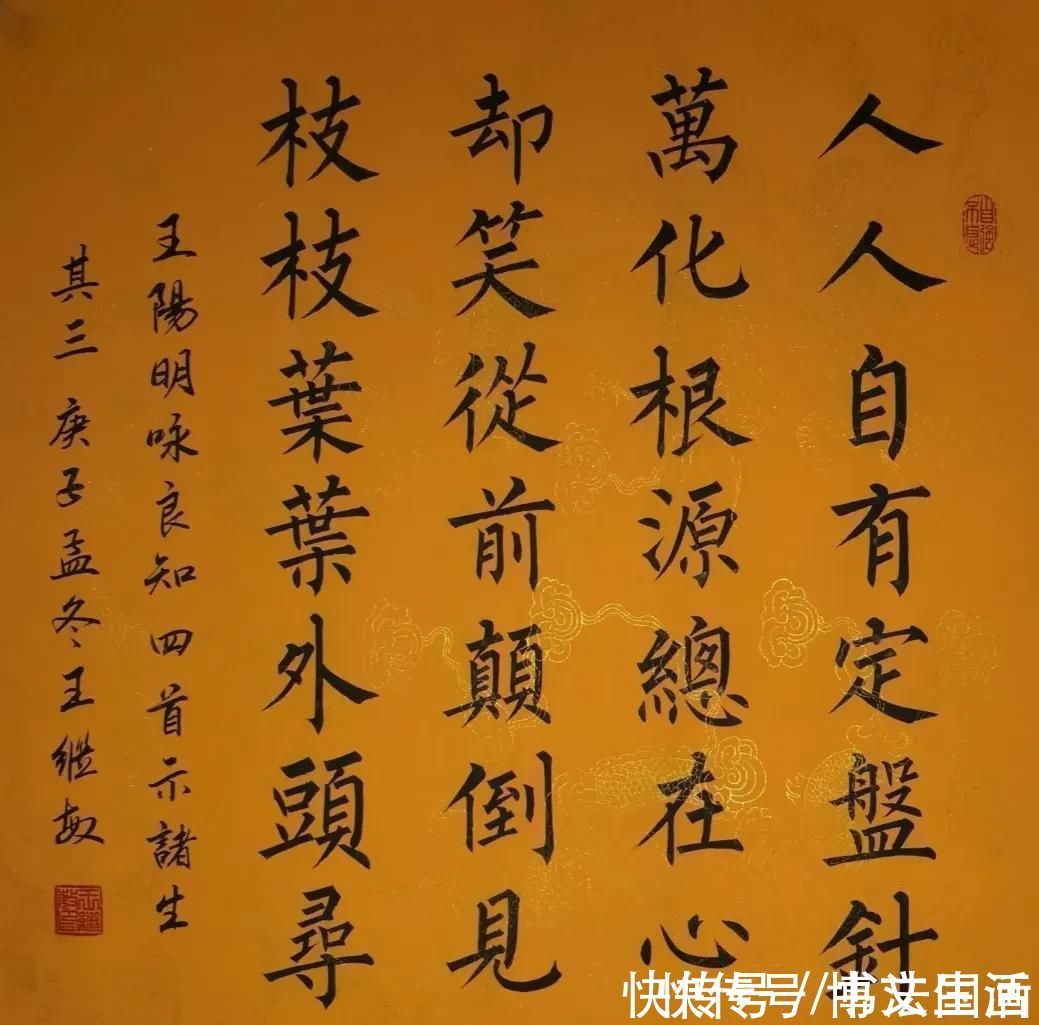 人人自有定盤針
萬化根源總在心
却笑從前顛倒見
枝枝葉葉外頭尋
王陽明咏良知四首示諸生
其三 庚子孟冬王繼敏
自強不息